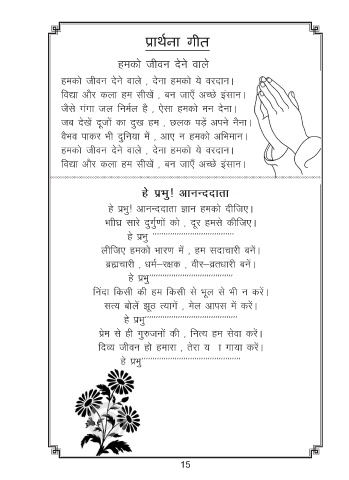 प्रार्थना गीत
हमको जीवन देने वाले
हमको जीवन देने वाले , देना हमको ये वरदान।
विद्या और कला हम सीखें , बन जाएँ अच्छे इंसान।
जैसे गंगा जल निर्मल है , ऐसा हमको मन देना।
जब देखें दूजों का दुख हम , छलक पड़ें अपने नैना।
वैभव पाकर भी दुनिया में , आए न हमको अभिमान।
हमको जीवन देने वाले , देना हमको ये वरदान।
विद्या और कला हम सीखें , बन जाएँ अच्छे इंसान।
हे प्रभु! आनन्ददाता
हे प्रभु! आनन्ददाता ज्ञान हमको दीजिए।
भाीघ्र सारे दुर्गुणों को , दूर हमसे कीजिए।
हे प्रभु
लीजिए हमको भारण में , हम सदाचारी बनें।
ब्रह्मचारी , धर्म–रक्षक , वीर–व्रतधारी बनें।
हे प्रभु
निंदा किसी की हम किसी से भूल से भी न करें।
सत्य बोलें झूठ त्यागें , मेल आपस में करें।
हे प्रभु
प्रेम से ही गुरुजनों की , नित्य हम सेवा करें।
दिव्य जीवन हो हमारा , तेरा य ा गाया करें।
हे प्रभु
15